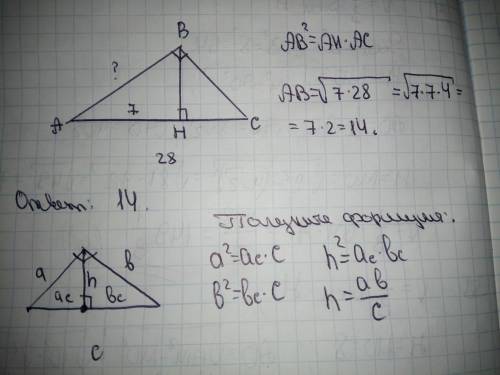 B
?
7
A
H
C
28
AB²=AH·AC
AB=√7·28=√7·7·4=
=7·2=14.
Ответ: 14.
a
h
b
ac
bc
c
Полезные формулы:
a²=ac·c
h²=ac·bc
b²=bc·c
h=ab/c